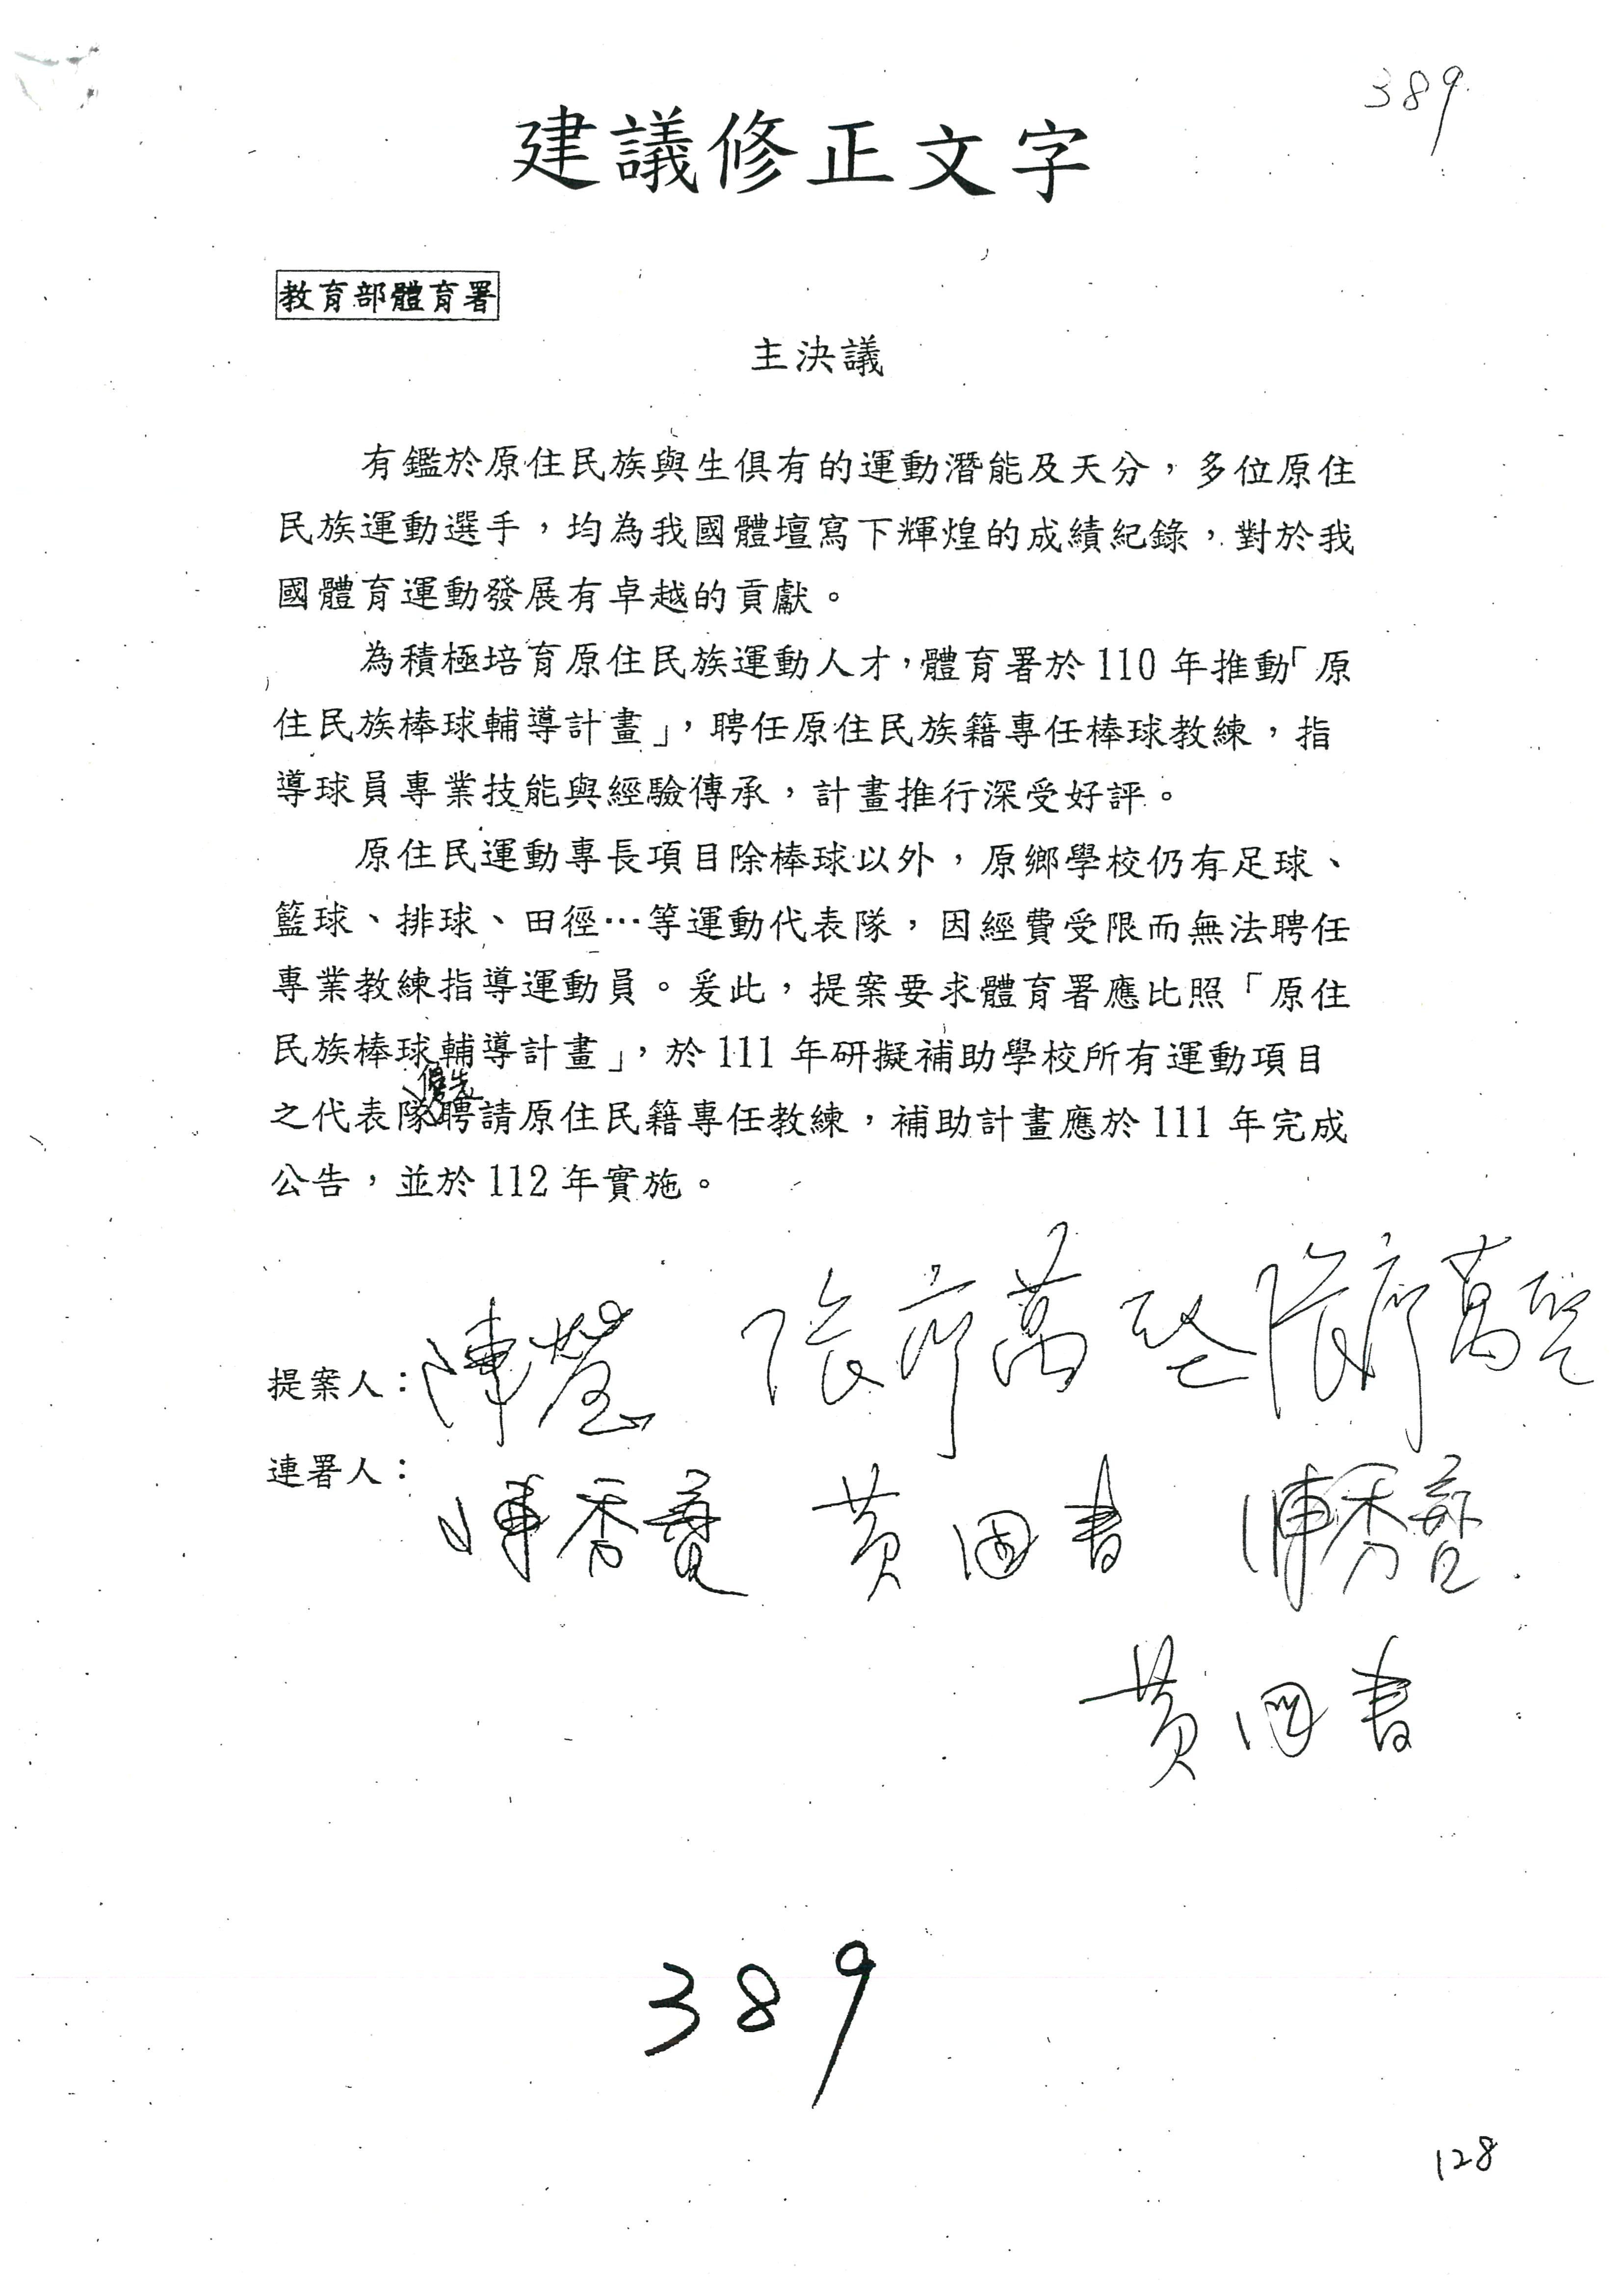 389
建議修正文字
教育部體育署
主決議
有鑑於原住民族與生俱有的運動潛能及天分，多位原住
民族運動選手，均為我國體壇寫下輝煌的成績紀錄，對於我
國體育運動發展有卓越的貢獻。
為積極培育原住民族運動人才，體育署於110年推動「原
住民族棒球輔導計畫」，聘任原住民族籍專任棒球教練，指
導球員專業技能與經驗傳承，計畫推行深受好評。
原住民運動專長項目除棒球以外，原鄉學校仍有足球、
籃球、排球、田徑…等運動代表隊，因經費受限而無法聘任
專業教練指導運動員。爰此，提案要求體育署應比照「原住
民族棒球輔導計畫」，於111年研擬補助學校所有運動項目
優先
之代表隊聘請原住民籍專任教練，補助計畫應於111年完成
公告，並於112年實施。
提案人：陳瑩 張廖萬堅 張廖萬堅
連署人：
陳秀寳 黃國書 陳秀寳
黃國書
389
128